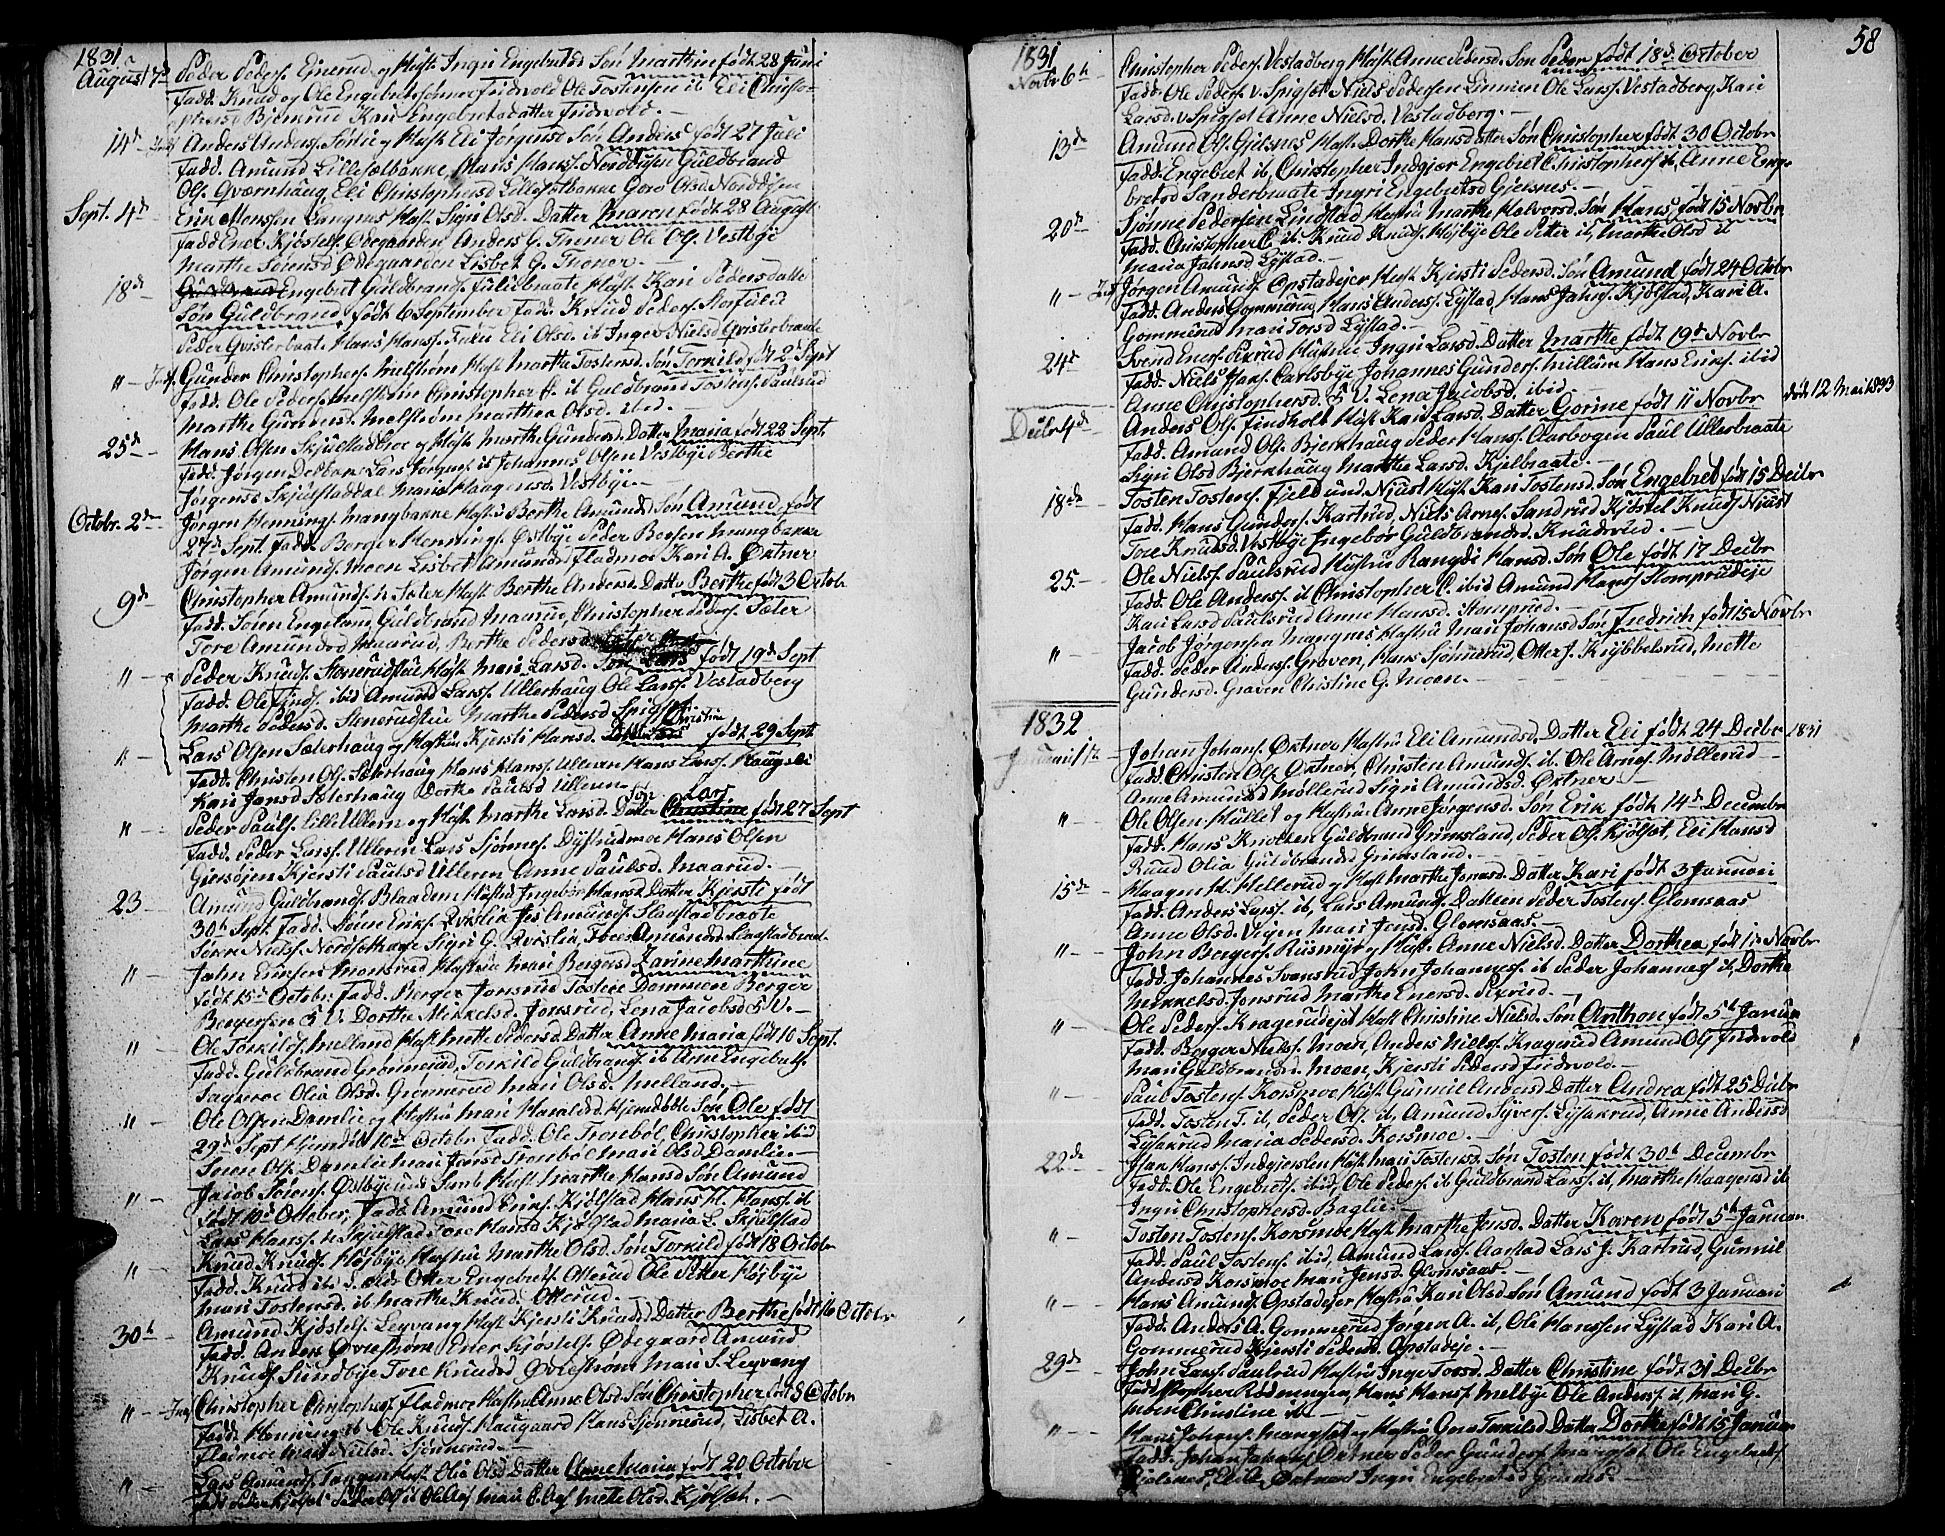 1831
August 7de Peder Peders. Einerud og Hust. Ingri Engebretsd Søn Marthin født 28 Juni
Fadd. Knud og Ole Engebretsønner Fridvold Ole Tostensen ib Eli Christo-
phersd Bjerkrud Kari Engebretsdatter Fridvold.
14de Anders Anders. og Hust. Eli Jørgensd Søn Anders født 27 Juli
Fadd. Amund Lillesætbakke, Hans Hans. Norddysen Guldbrand
Ols. Qværnhaug, Eli Christophersd Lillesætbakke Goro Olsd Norddysen
Sept. 4de Erik Monsen Langnæs Hust. Sigri Olsd. Datter Maren født 28 August
Fadd. Ener Kjøstels. Ødegaarden Anders G. Ole Ols. Vestbye
Marthe Sørensd Ødegaarden Lisbet G.
18de Engebret Guldbrands. Hust. Kari Pedersdatter
Søn Guldbrand født 6 September Fadd. Knud Peders.
Peder Qvisterbraat. Hans Hans. Eli Olsd. ib Inger Nielsd Qvisterbraate
" Gunder Christophers. Melstrøm Hust. Marthe Tostensd. Søn Torkild født 2de Sept
Fadd. Ole Peders. Melstrøm Christopher C. ib Guldbrand Tostens. Paulsrud
Marthe Gundersd. Melstrøm Marthea Olsd. ibid.
25de Hans Olsen og Hust. Marthe Gundersd. Datter Maria født 22 Sept.
Fadd. Jørgen Lars Jørgens. ib Johannes Olsen Vestbye Berthe
Jørgensd Skjulstaddal Maria Haagensd. Vestbye.
Octobr. 2de Jørgen Hennings. Mangbakke Hustru Berthe Amundsd Søn Amund født
27de Sept. Fadd. Borger Hennings. Østbye Peder Mangbakke
Jørgen Amunds. Moen Lisbet Amundsd Fladmoe Kari A. Øxtner
9de Christopher Amunds. Sæter Hust. Berthe Andersd. Datter Berthe født 3 Octobr
Fadd. Guldbrand Maarud, Christopher Peders. Sæter
Tore Amundsd Maarud, Berthe Pedersd
" Peder Knuds. Stenerudstue Hust. Mari Larsd. født 19de Sept
Fadd. Ole ibid Amund Larss. Ullerhaug Ole Larss. Vestadberg
Marthe Pedersd. Stenerudstue Marthe Pedersd Spigset
Christine
" Lars Olsen Sæterhaug og Hustru Kjersti Hansd. født 29 Sept
Fadd. Christen Ols. Sæterhaug Hans Hans. Ulleren Hans Larss. Haugslie
Kari Jansd Sæterhaug Dorthe Paulsd Ulleren
Søn Lars
" Peder Pauls. Lille Ullern og Hust. Marthe Larsd. Datter Christine født 27 Sept
Fadd. Peder Larss. Ulleren Lars Sjønnes. Dystrudmoe Hans Olsen
Kjersti Paulsd Ulleren Anne Paulsd. Maarud.
23 Amund Guldbrands. Blaadam Hustru Ingebor Hansd. Datter Kjersti født
30te Sept. Fadd. Sønne Eriks. Qvislia Amunds. Slaastadbraate
Sønne Niels. Sigri G. Qvislia, Tore Amundsd. Slaastadbraat.
" John Ericksen Monsrud Hustru Mari Bergersd Karine Marthine
født 15de Octobr. Fadd. Berger Jonsrud Dammen Berger
Bergersen S. V. Dorthe Mikkelsd. Jonsrud, Lena Jacobsd S. V.
" Ole Torkilds. Melland Hust. Mette Pedersd. Datter Anne Maria født 10 Sept.
Fadd. Guldbrand Grønnerud, Torkild Guldbrands. ib Arne Engebrets.
Sagmoe Olia Olsd. Grønnerud Mari Olsd. Melland.
" Ole Olsen Damlie og Hustru Mari Haraldsd. Hjemdøbte Søn Ole født
29de Sept Hjemdøbt 10de October Fadd. Ole Tronbøl, Christopher ibid
Ols. Damlie Mari Tronbøl Mari Olsd Damlie.
" Jacob Sørens. Østbye Hust. Marthe Hansd Søn Amund
født 10de October, Fadd. Amund Eriks. Kjølstad Hans H. Hans. ib
Lars Hans. Skjulstad Tore Hansd Kjølstad Maria L. Skjulstad
" Knud Knuds. Høybye Hustru Marthe Olsd. Søn Torkild født 18 Octobr
Fadd. Knud ibid Otter Engebrets. Otterud Ole Petter Høybye
Mari Tostensd. ib Marthe Knudsd. Otterud.
30te Amund Kjøstels. Leqvang Hust. Kjersti Knudsd. Datter Berthe født 16 Octobr
Fadd. Anders Øvrestrøm Ener Kjøstels. Ødegaard Amund
Knuds. Sundbye Tore Knudsd. Øvrestrøm Mari S. Leqvang
" Christopher Christophers. Fladmoe Hustru Anne Olsd. Søn Christopher født 8 Octobr
Fadd. Henning ib Ole Knuds. Haugaard Hans Sjønnerud, Lisbet A.
Fladmoe Mari Nielsd. Sjønnerud.
" Lars Amunds. Tangen Hust. Olia Olsd Datter Anne Maria født 20 October
Fadd. Peder Kjølset Peder Ols. ib Ole Ols. Mari O. Mette Olsd. Kjølset.
58
1831
Novbr 6te Christopher Peders. Vestadberg Hust. Anne Pedersd. Søn Peder født 18de October
Fadd. Ole Peders. v. Spigset Niels Pedersen Linnien Ole Larss. Vestadberg Kari
Larsd. v. Spigset Anne Nielsd. Vestadberg.
13de Amund Ols. Gjelsnes Hust. Dorthe Hansdatter Søn Christopher født 30 Octobr
Fadd. Engebret ib, Christopher Indgjær Engebret Christophers. ib, Anne Enge-
bretsd Sanderbraate Ingri Engebretsd Gjelsnes.
20de Sjønne Pedersen Lindstad Hustru Marthe Halvorsd. Søn Hans født 15 Novbr
Fadd. Christopher C. ib. Knud Knuds. Høybye Ole Petter ib, Marthe Olsd ib
Maria Jahnsd Lystad.
" Jørgen Amunds. Opstadejer Hust. Kjersti Pedersd. Søn Amund født 24 Octobr
Fadd. Anders Gommerud, Hans Anders. Lystad, Hans Jahns. Kjølstad, Kari A.
Gommerud Mari Torsd Lystad.
24de Svend Eners. Sixrud Hustru Ingri Larsd. Datter Marthe født 19de Novbr
Fadd. Niels Hans. Carlsbye Johannes Gunders. Millum Hans Eriks. ibid
Anne Christophersd. S. V. Lena Jacobsd. ibid.
Decbr 4de Anders Ols. Findholt Hust. Kari Larsd. Datter Gorine født 11 Novbr døde 12 Mai 1833
Fadd. Amund Ols. Bjerkhaug Peder Hans. Aarbogen Paul Ullerbraate
Sigri Olsd Bjerkhaug Marthe Larsd. Kjelbraate.
18de Tosten Tostens. Fjeld und. Njust Hust. Kari Tostensd. Søn Engebret født 15 Decbr
Fadd. Hans Gunders. Kartrud, Niels Arnes. Sandrud Kjøstel Knuds. Njust
Tore Knudsd. Vestbye Ingebor Guldbrandsd. Knudsrud.
25. Ole Niels. Paulsrud Hustru Rangdi Hansd. Søn Ole født 17 Decbr
Fadd. Ole Anders. ib Christopher C. ibid Amund Hans. Homprudeje
Kari Larsd Paulsrud Anne Hansd. Homprud.
" Jacob Jørgensen Mangnes Hustru Mari Johansd Søn Fredrich født 15 Novbr
Fadd. Peder Anders. Graven, Hans Sjønnerud, Otter J. Krybbelsrud, Mette
Gundersd. Graven Christine G. Moen.
1832
Januari 1ste Johan Johans. Øxtner Hustru Eli Amundsd. Datter Eli født 24 Decbr 1831
Fadd. Christen Ols. Øxtner, Christen Amunds. ib. Ole Arnes. Møllerud
Anne Amundsd Møllerud Sigri Amundsd Øxtner
" Ole Olsen Hullet og Hustru Anne Jørgensd. Søn Erik født 14de Decembr
Fadd. Hans Knolten Guldbrand Grimsland, Peder Ols. Kjølset, Eli Hansd
Ruud Olia Guldbrandsd Grimsland.
15de Haagen H. Hellerud og Hust. Marthe Jonasd. Datter Kari født 3 Januari
Fadd. Anders Larss. ib, Lars Amunds. Dalteen Peder Tostens. Glomsaas
Anne Olsd. Vigen Mari Jensd. Glomsaas.
" John Bergers. Riismyr og Hust. Anne Nielsd. Datter Dorthea født 1ste Novbr
Fadd. Johannes Svensrud John Johannes. ib Peder Johannes. ib, Dorthe
Mikkelsd. Jonsrud Marthe Enersd. Sixrud.
" Ole Peders. Kragerudejet Hust. Christine Nielsd. Søn Anthon født 5te Januar
Fadd. Berger Niels. Moen, Anders Niels. Kragerud Amund Ols. Fridvold
Mari Guldbrandsd. Moen, Kjersti Pedersd Fridvold.
" Paul Tostens. Korsmoe Hust. Gunnil Andersd Datter Andrea født 25 Decbr
Fadd. Tosten T. ib, Peder Ols. ib, Amund Syvers. Lysakrud, Anne Andersd
Lysakrud Maria Pedersd. Korsmoe.
22de Hans. Indgjerslen Hust. Mari Tostensd. Søn Tosten født 30te Decembr
Fadd. Ole Engebrets. ibid, Ole Peders. ib Guldbrand Larss. ib, Marthe Haagensd ib
Ingri Christophersd. Baglie.
" Tosten Tostens. Korsmoe Hust. Marthe Jensd. Datter Karen født 5te Januar
Fadd. Paul Tostens. ibid, Amund Larss. Aarstad Lars J. Kartrud, Gunnil
Andersd Korsmoe Mari Jensd. Glomsaas.
" Hans Amunds. Opstadejer Hustru Kari Olsd Søn Amund født 3 Januari
Fadd. Anders A. Gommerud Jørgen A. ib, Ole Hanssen Lystad Kari A.
Gommerud Kjersti Pedersd. Opstadeje.
29de John Larss. Paulrud Hustru Inge Torsd. Datter Christine født 31 Decbr
Fadd. Stopher Rødningen, Hans Hans. Melbye Ole Anders. ib, Mari G.
Christine ib.
" Hans Johans. Mangset og Hustru Torkilsd. Datter Dorthe født 15 Januar
Fadd. Johan Johans. Øxtner Peder Gunders. Mangset Ole Engebrets.
Gjelsnes, Øxtner Ingri Engebretsd